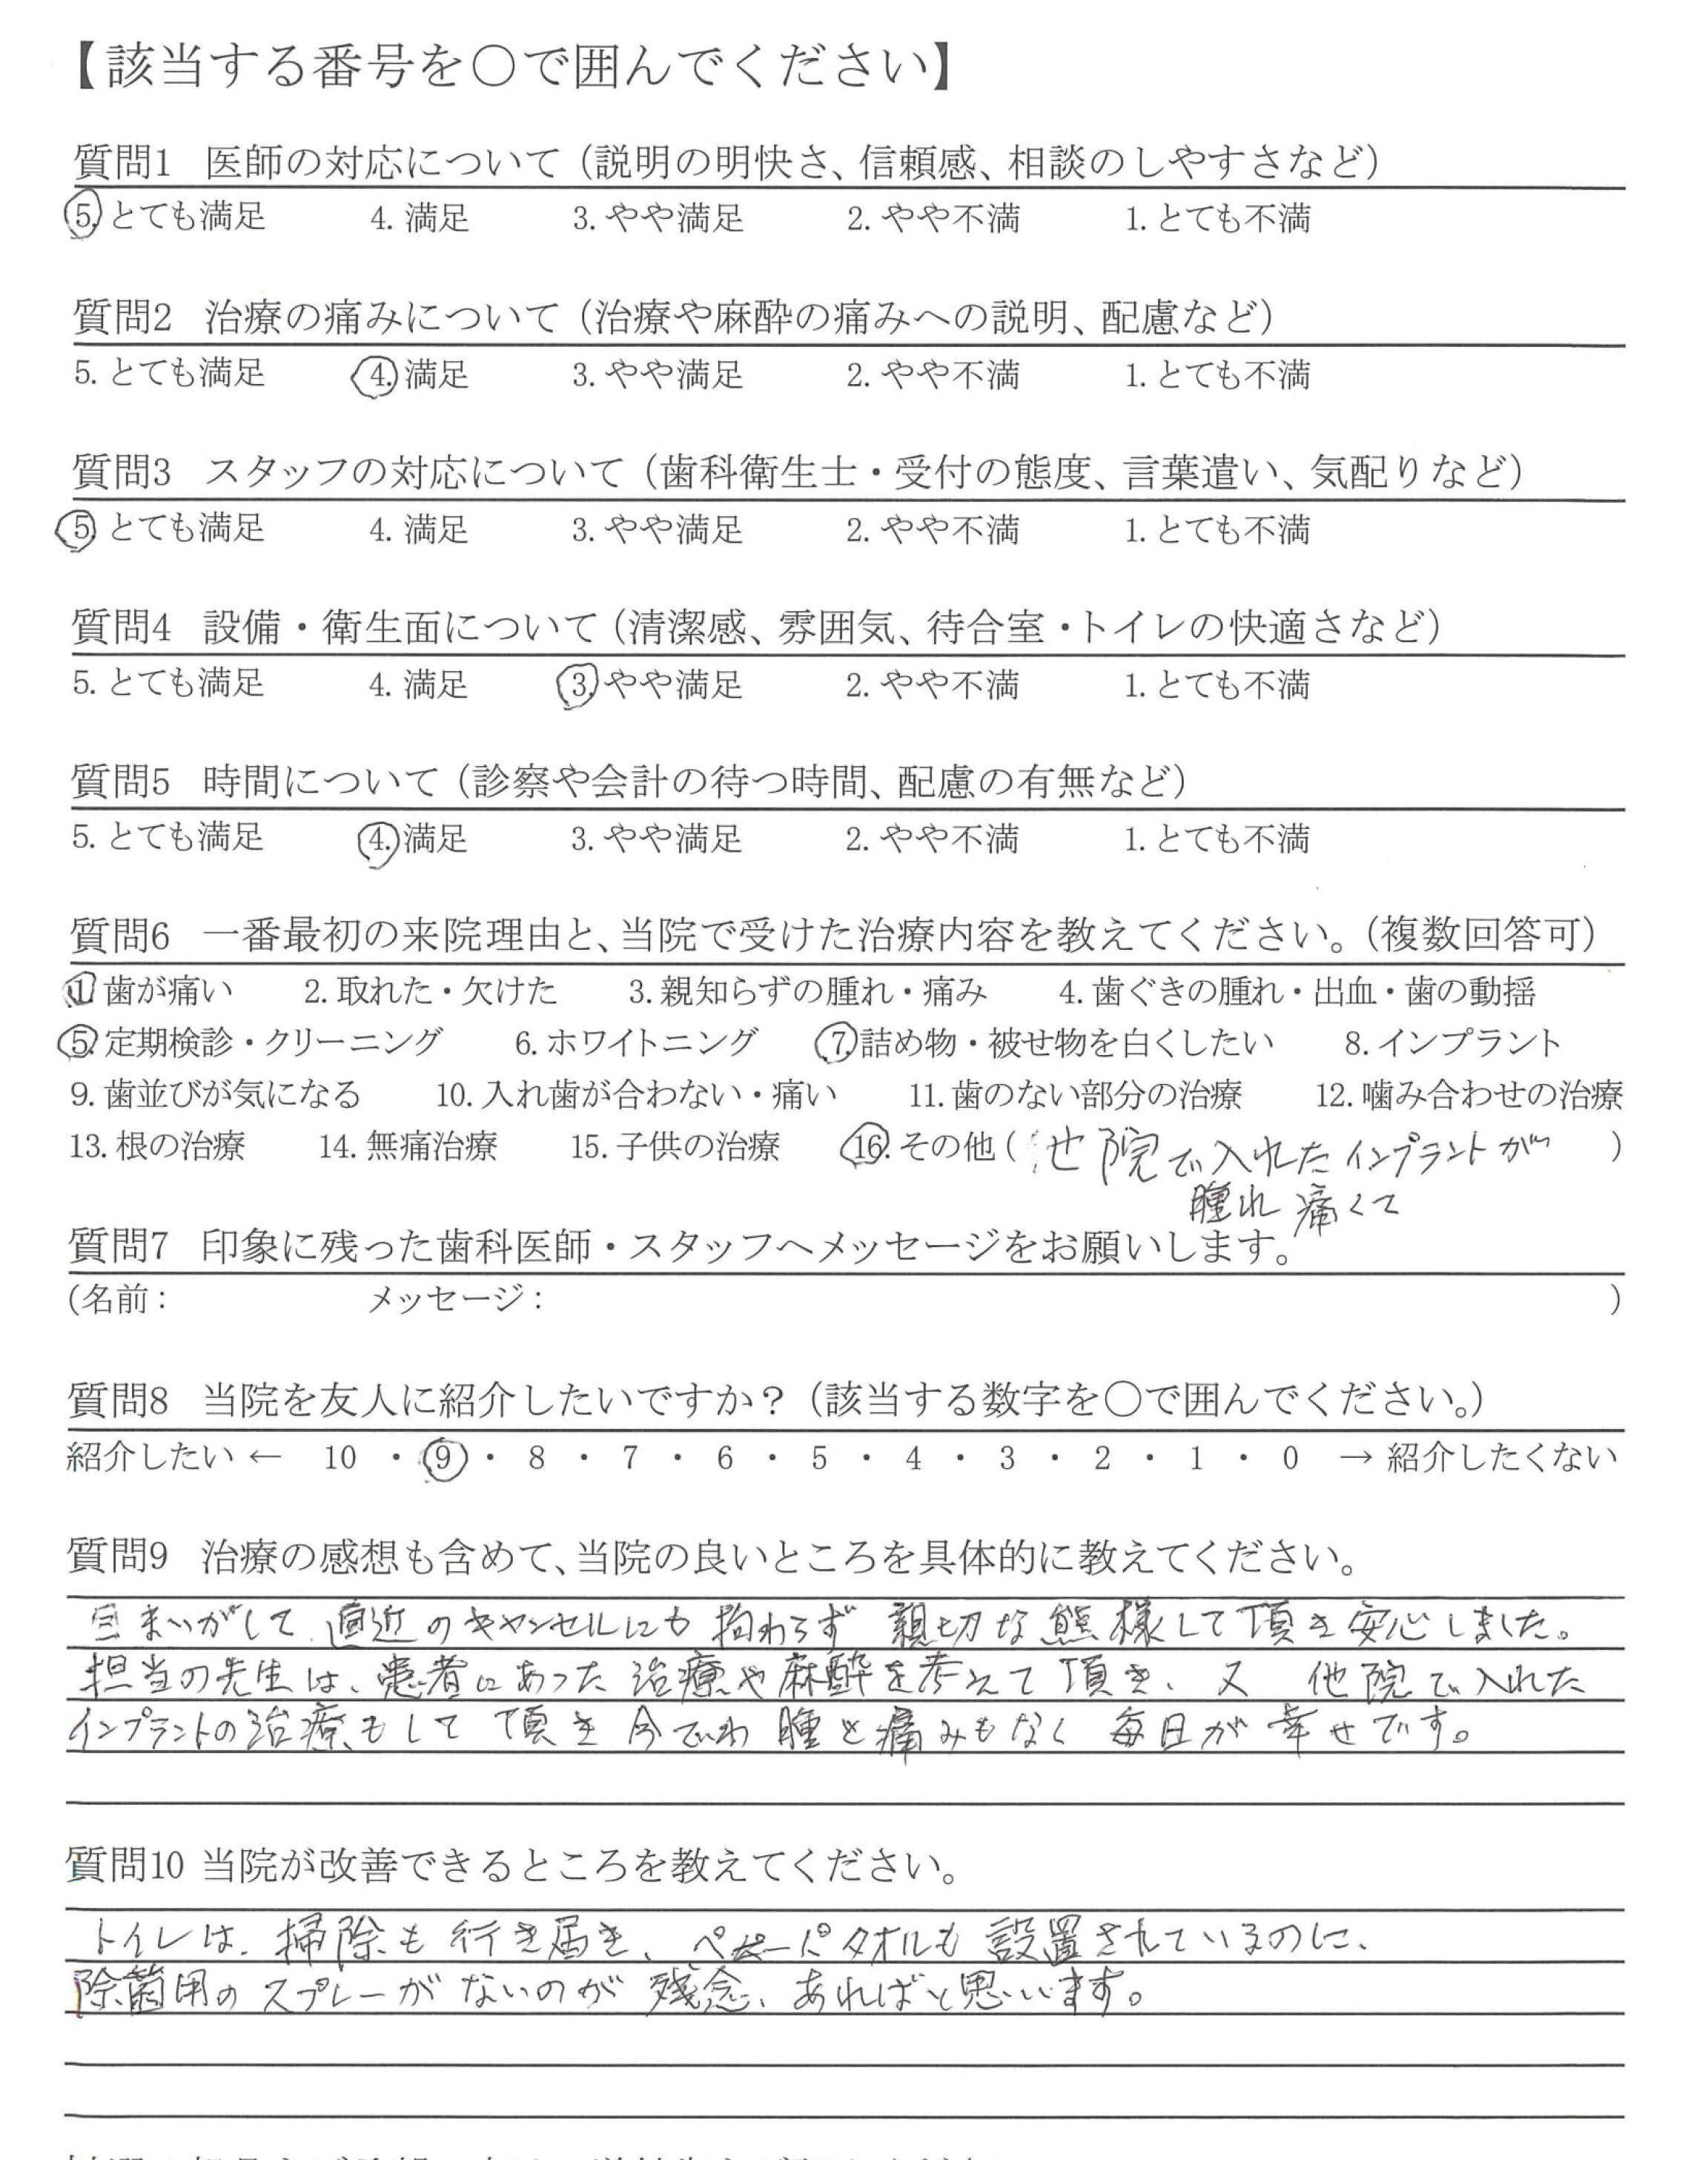 【該当する番号を○で囲んでください】
質問1 医師の対応について（説明の明快さ、信頼感、相談のしやすさなど）
5. とても満足 4. 満足 3. やや満足 2. やや不満 1. とても不満
質問2 治療の痛みについて（治療や麻酔の痛みへの説明、配慮など）
5. とても満足 4. 満足 3. やや満足 2. やや不満 1. とても不満
質問3 スタッフの対応について（歯科衛生士・受付の態度、言葉遣い、気配りなど）
5. とても満足 4. 満足 3. やや満足 2. やや不満 1. とても不満
質問4 設備・衛生面について（清潔感、雰囲気、待合室・トイレの快適さなど）
5. とても満足 4. 満足 3. やや満足 2. やや不満 1. とても不満
質問5 時間について（診察や会計の待つ時間、配慮の有無など）
5. とても満足 4. 満足 3. やや満足 2. やや不満 1. とても不満
質問6 一番最初の来院理由と、当院で受けた治療内容を教えてください。（複数回答可）
1. 歯が痛い 2. 取れた・欠けた 3. 親知らずの腫れ・痛み 4. 歯ぐきの腫れ・出血・歯の動揺
5. 定期検診・クリーニング 6. ホワイトニング 7. 詰め物・被せ物を白くしたい 8. インプラント
9. 歯並びが気になる 10. 入れ歯が合わない・痛い 11. 歯のない部分の治療 12. 噛み合わせの治療
13. 根の治療 14. 無痛治療 15. 子供の治療 16. その他（他院で入れたインプラントが ）
腫れ痛くて
質問7 印象に残った歯科医師・スタッフへメッセージをお願いします。
（名前： メッセージ： ）
質問8 当院を友人に紹介したいですか？（該当する数字を○で囲んでください。）
紹介したい ← 10 ・ 9 ・ 8 ・ 7 ・ 6 ・ 5 ・ 4 ・ 3 ・ 2 ・ 1 ・ 0 → 紹介したくない
質問9 治療の感想も含めて、当院の良いところを具体的に教えてください。
目まいがして、直近のキャンセルにも拘わらず 親切な態様して頂き安心しました。
担当の先生は、患者にあった治療や麻酔を考えて頂き、又 他院で入れた
インプラントの治療もして頂き今でわ腫と痛みもなく 毎日が幸せです。
質問10 当院が改善できるところを教えてください。
トイレは、掃除も行き届き、ペーパータオルも設置されているのに、
除菌用のスプレーがないのが残念、あればと思います。